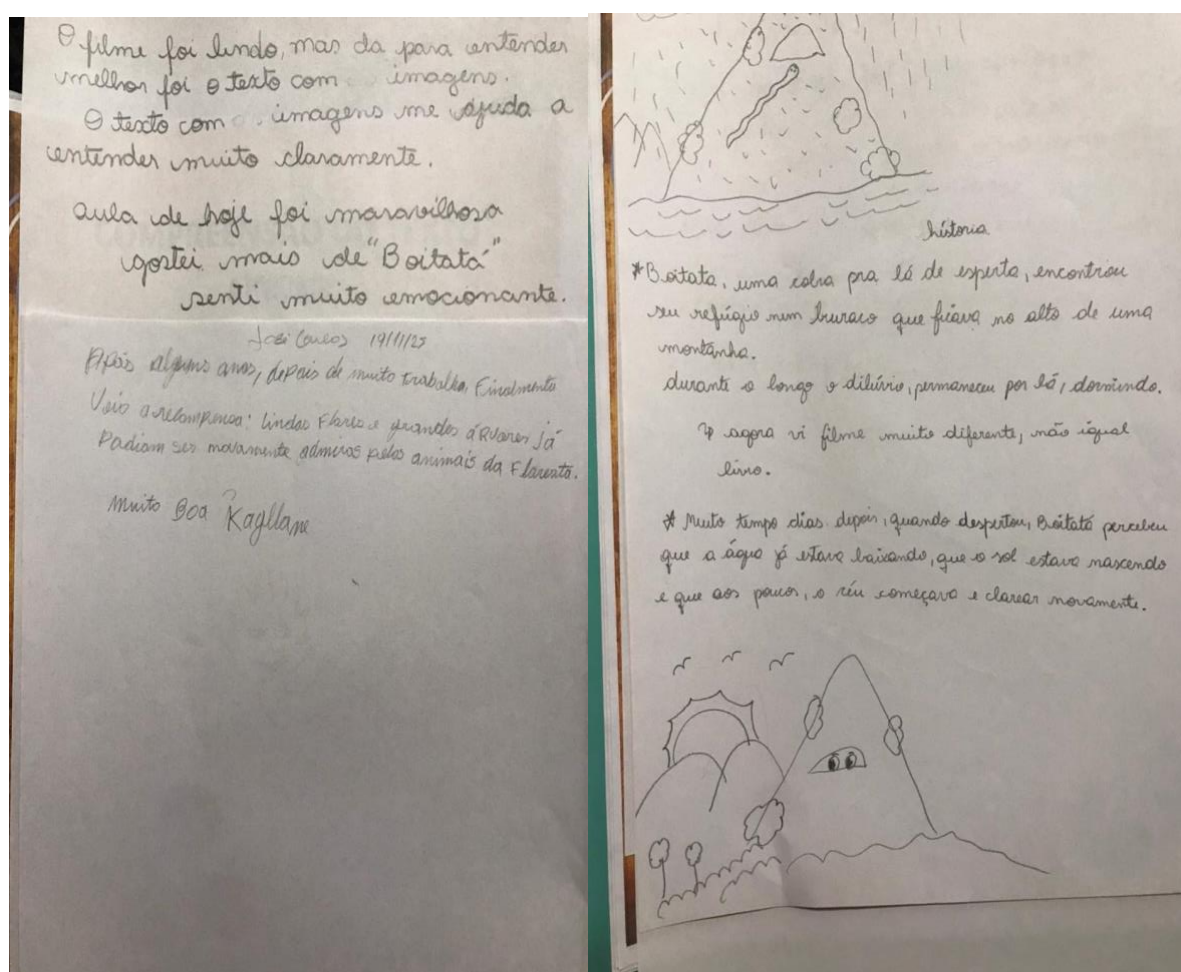 O filme foi lindo, mas da para entender
melhor foi o texto com imagens.
O texto com imagens me ajuda a
entender muito claramente.
aula de hoje foi maravilhosa
gostei mais de "Boitatá"
senti muito emocionante.
19/11/25
Após alguns anos, depois de muito trabalho, Finalmente
Veio a recompensa: lindas Flores e grandes áRvores já
Podiam ser novamente admiros pelos animais da Floresta.
muito Boa Kagllane
história
*Boitata, uma cobra pra lá de esperta, encontriou
seu refúgio num buraco que ficava no alto de uma
montanha.
durante o longo o dilúvio, permaneceu por lá, dormindo.
agora vi filme muito diferente, não igual
livro.
* Muito tempo dias depois, quando despertou, Boitatá percebeu
que a água já estava baixando, que o sol estava nascendo
e que aos poucos, o céu começava e clarear novamente.